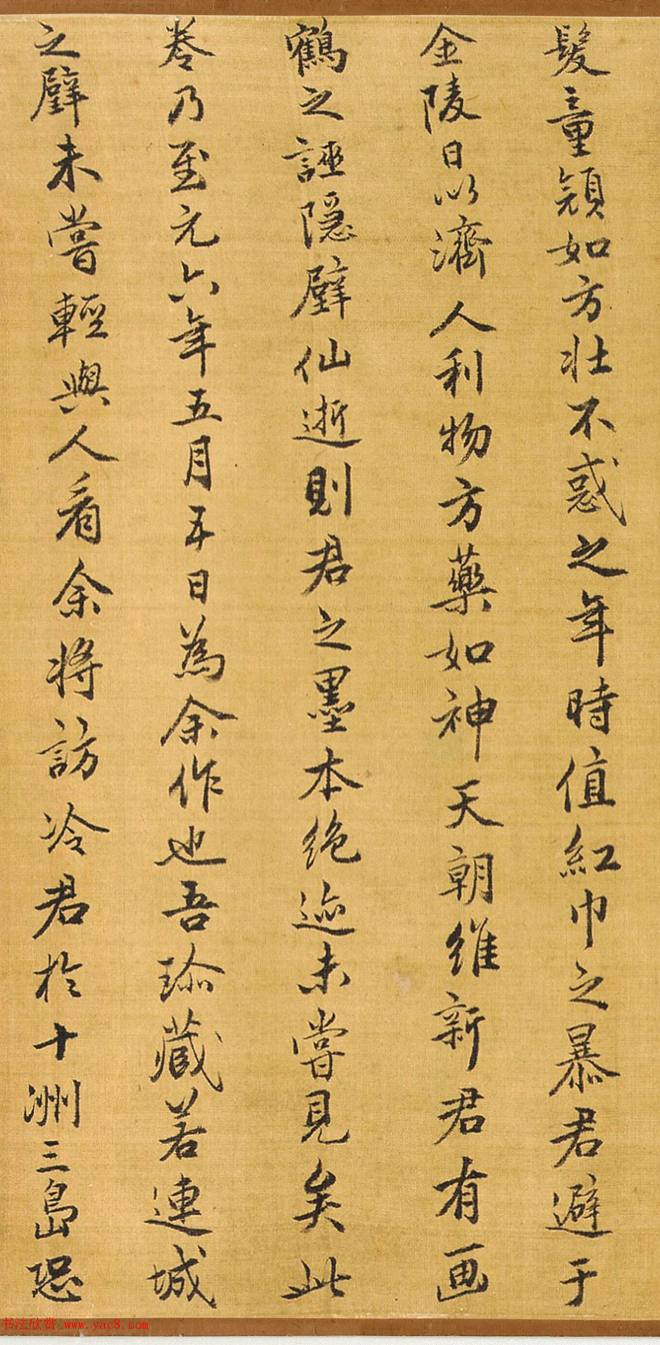 髮童穎如方壯不惑之年時值紅巾之暴君避于
金陵日以濟人利物方藥如神天朝維新君有画
鶴之誣隱壁仙逝則君之墨本絶迹未嘗見矣此
卷乃至元六年五月五日為余作也吾珍藏若連城
之壁未嘗輕與人看余將訪冷君於十洲三島恐
书法欣赏 www.yac8.com